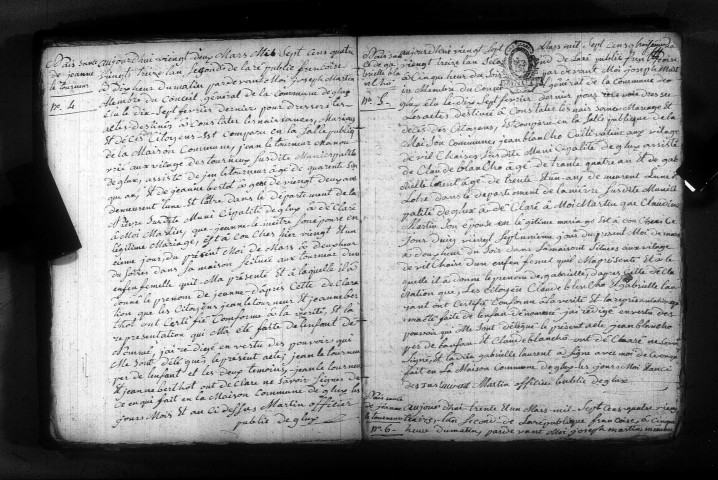 Naissance
de jeanne
le tourneur
No. 4
aujourdhui viengt deux Mars Mil Sept cens quatre
vingt treize lan Segond de la ré publié francoise
à dix heur du matin par devant Moi Joseph Martin
Membre du Conseil général de la Commune de glux
élu le dix Sept fevrier dernier pour dresser les
actes destinés à Constater les naissances, Mariages
et déces des Citoyens Est comparu en la Salle publique
de la Maison Commune, jean le tourneur
au vilage des tourneur Susdite Municipalité
de glux, assisté de jean le tourneur agé de quarente
ans, et de jeanne bertot agée de vienqt deux ans
demeurent lune et lautre dans le département de la
Nievre Susdite Muni Cipalité de glux à dé Claré
à Moi Martin que jeanne
légitime Mariage, est à Cou Chée hier vingt et un
ième jour, du présent Moi de Mars à deux heur
du Soir dans Sa maison Scitué aux tourneur dun
enfen femelle quil Ma présenté et à laquelle il à
donné le prenom de jeanne daprès Cette dé Clara
tion que les Citoyens jean le tourneur et jeanne ber
thot ont Certifié Conforme à la vérité, et la
représentation qui Ma été faite de lenfant dé
Nommé, jai rédigé en vertu des pouvoirs qui
Me Sont délé gués le présent acte, jean le tourneur
per de lenfant et les deux temoins jean le tourneur
et jeanne berthot ont dé Claré ne Savoir Signer de
ce enqui fait en la Maison Commune de glux les
jours Mois et an Ci dessus Martin officier
public de glux
Naissan
Ce de ga
brielle bla
cho
No. 5
aujourdhui viengt Sept Mars mil Sept cens
vingt treize lan Second de la ré publié
à Cinq heur du Soir par devant Moi joseph Mart
in Membre du Conseil général de la Commune de
glux élu le dix Sept fevrier dernier pour dresser
les actes destinés à Constater les naissances Mariage et
déces des Citoyens, est comparu en la Salle publique de la
Mai Son Commune, jean blancho Cultivateur au village
de vil Chaise Susdite Muni Cipalité de glux assisté
de Claude blancho à gé de trente quatre ans et de gab
rielle lorent à gée de trente et un ans demeurent lune et
lotre dans le departement de la niévre Susdite Munici
palité de glux à dé Claré à Moi Martin que Claudine
Martin Son épouse en légitime mariage est à Cou Chée
jour duier viengt Sept unième jour du présent Moi de mars
à douz heur du dans Sa maison Située au vilage
de vil Chaise dun enfen femel quil Ma présenté et à la
quelle il à donné le prenom de gabrielle, daprès Cette dé Cla
ration que, Les citoyens Claude blancho et gabrielle lau
rant ont Certifié Conforme à la vérité et la représentation qui
faite de lenfan dénommé jai rédigé en vertu des
pouvoir qui Me Sont délégué le présent acte jean blancho
per de lanfan et Claude blancho ont dé Claré ne Savoir
Signé, et la dite gabrielle laurent à Signé avec moi
fait en La Maison Commune de glux les jours Mois et anci
dessus laurent Martin officier public de glux
Naissance
de jeanne
le tourneur
No. 6
aujourdhui trente et un Mars mil Sept cens quatre vien
treize lan Second de la ré publique francoise, à Cinque
heure du matin, par de vant Moi joseph martin membre